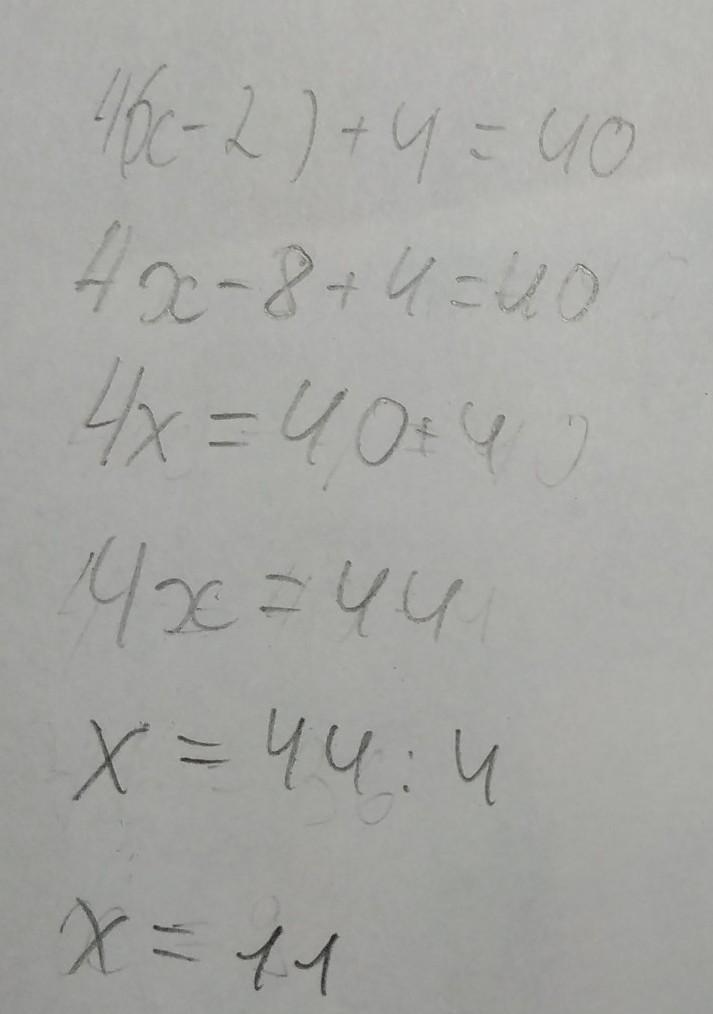 4(x-2)+4=40
4x-8+4=40
4x=40+4
4x=44
x=44:4
x=11